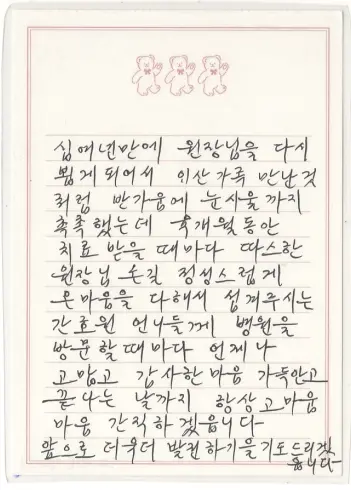 십여년만에 원장님을 다시
뵙게 되어서 이산가족 만난것
처럼 반가움에 눈시울까지
촉촉했는데 육개월동안
치료 받을 때마다 따스한
원장님 손길 정성스럽게
온 마음을 다해서 섬겨주시는
간호원 언니들께 병원을
방문할때마다 언제나
고맙고 감사한마음 가득안고
끝나는 날까지 항상고마움
마음 간직하겠읍니다
앞으로 더욱더 발전하기을기도드리겠
읍니다